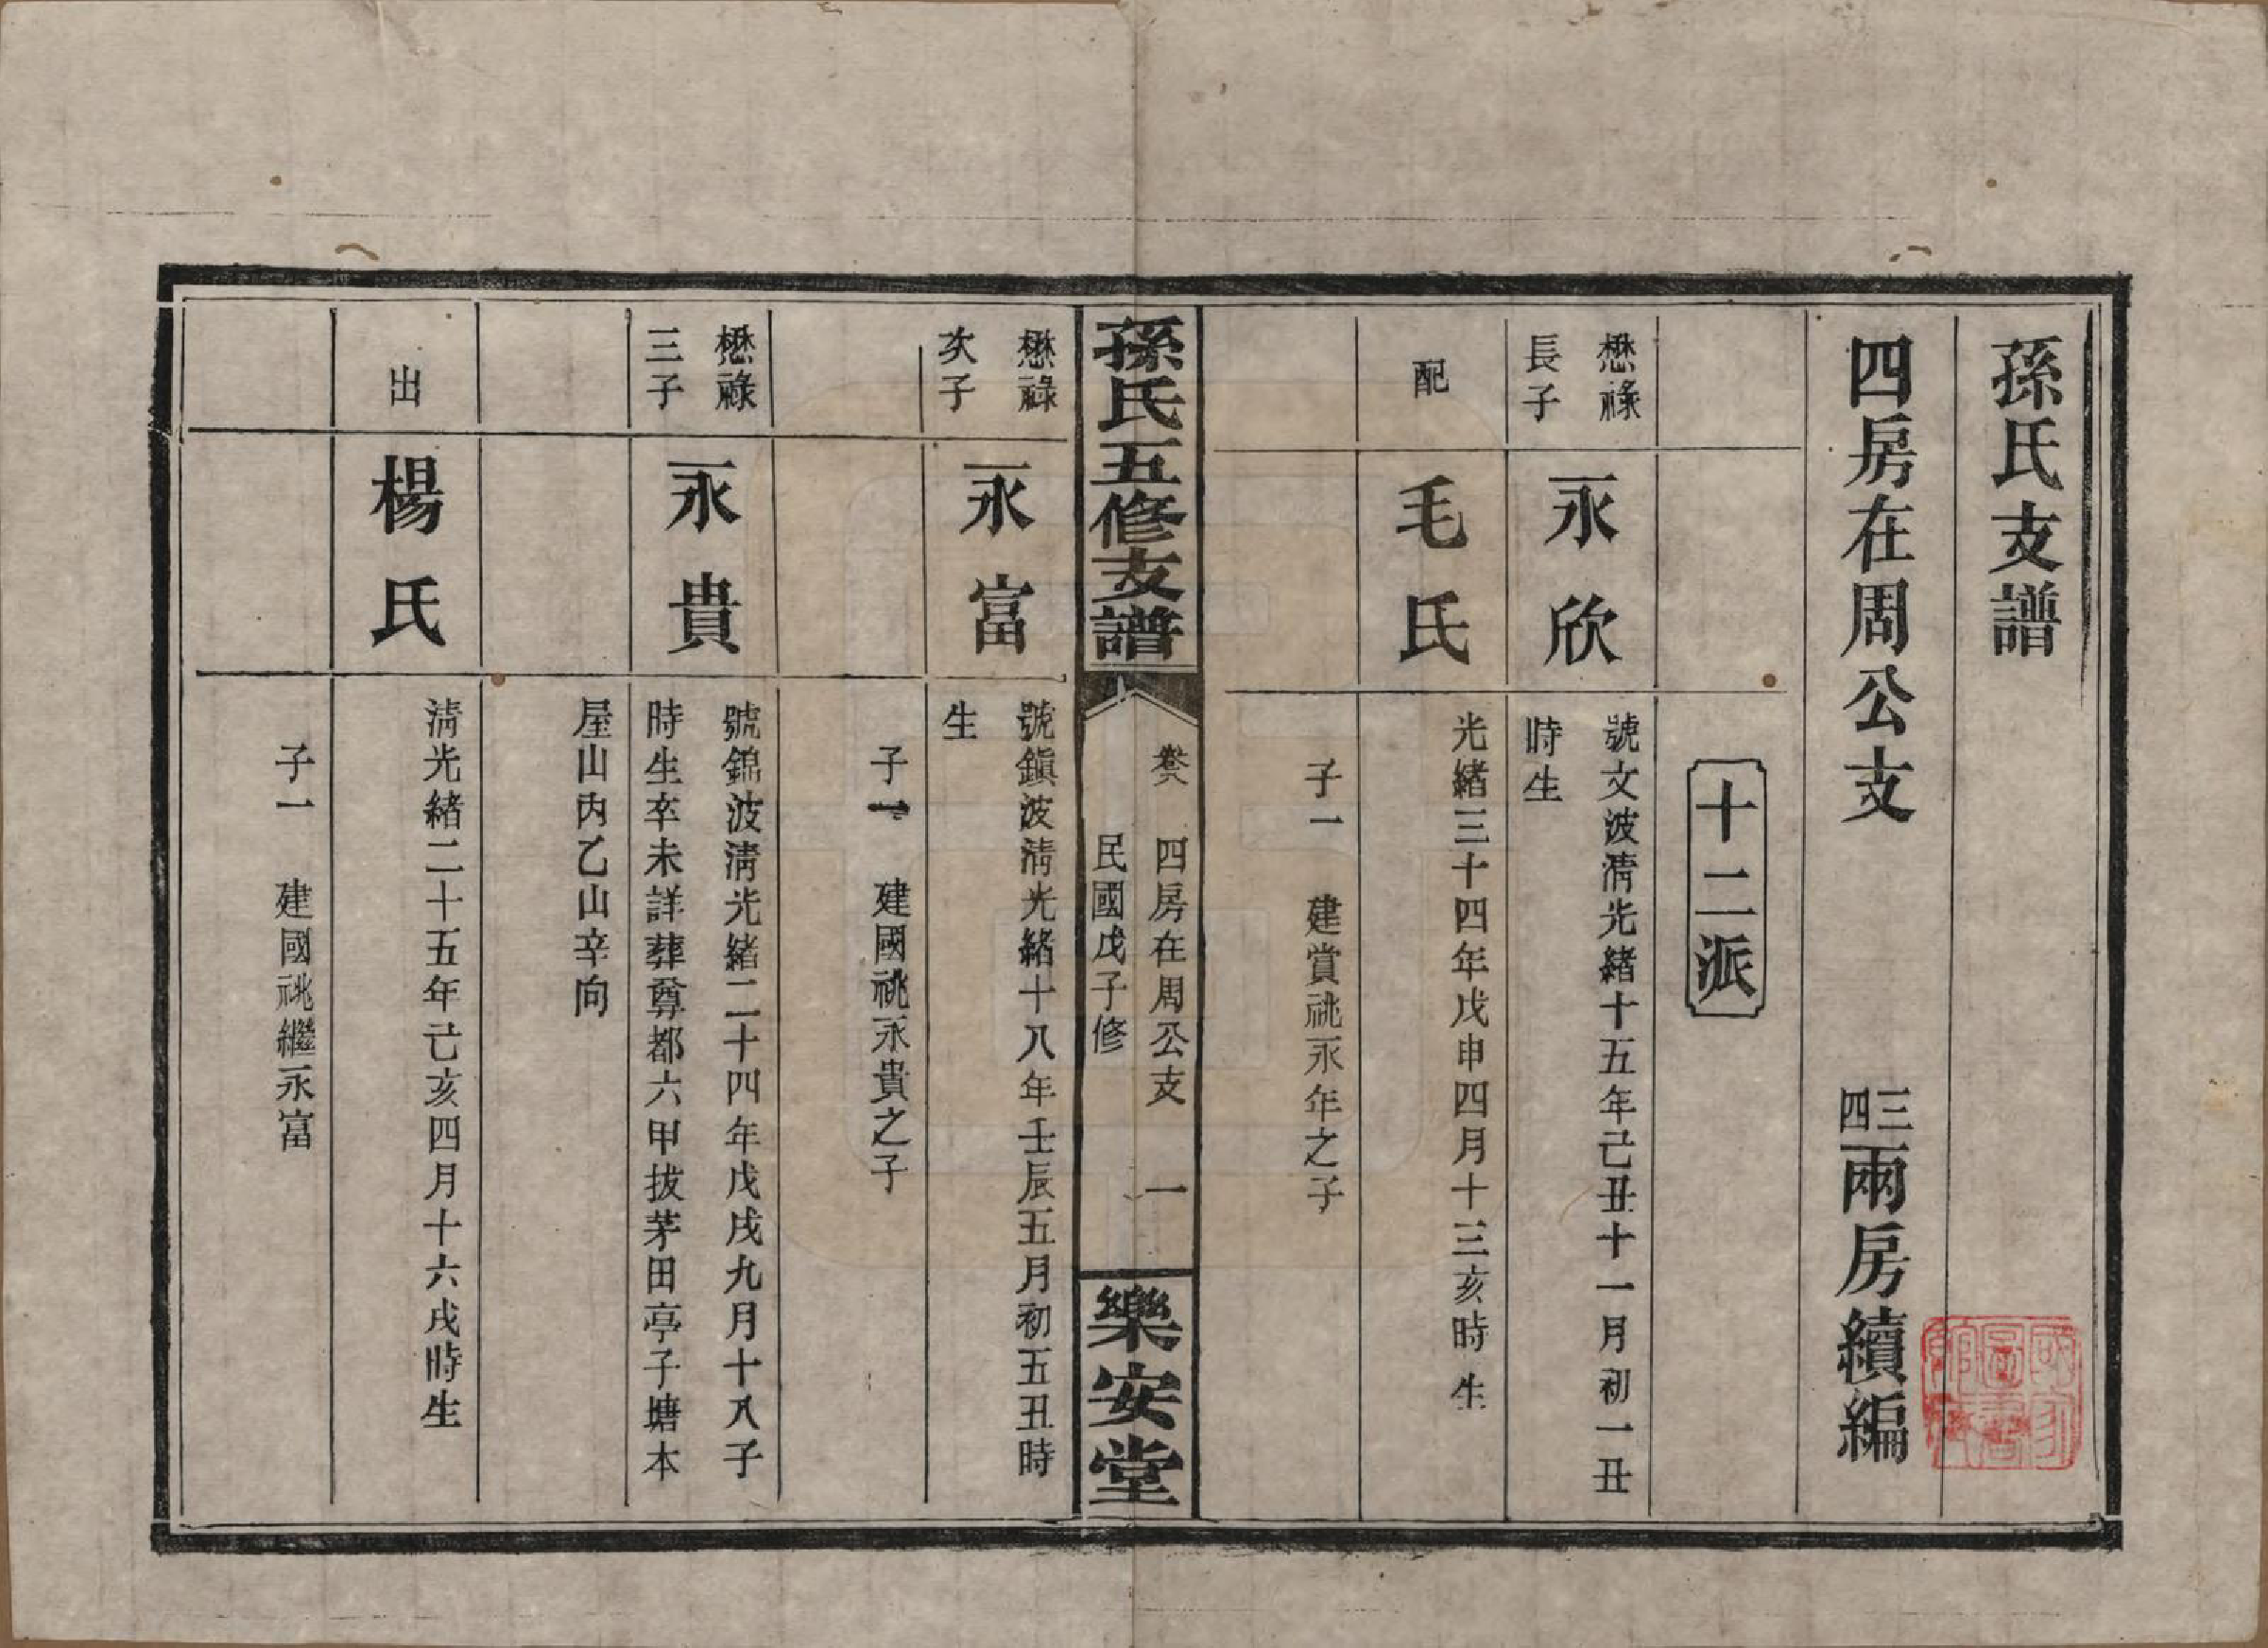 孫氏支譜
四房在周公支 三四兩房續編
十二派
懋祿
長子
永欣
號文波淸光緒十五年己丑十一月初一丑
時生
配
毛氏
光緒三十四年戊申四月十三亥時生
子一 建賞祧永年之子
孫氏五修支譜
卷八 四房在周公支 一
民國戊子修
樂安堂
懋祿
次子
永富
號鎭波淸光緒十八年壬辰五月初五丑時
生
子一 建國祧永貴之子
懋祿
三子
永貴
號錦波淸光緒二十四年戊戌九月十八子
時生卒未詳葬尊都六甲拔茅田亭子塘本
屋山內乙山辛向
出
楊氏
淸光緒二十五年己亥四月十六戌時生
子一 建國祧繼永富